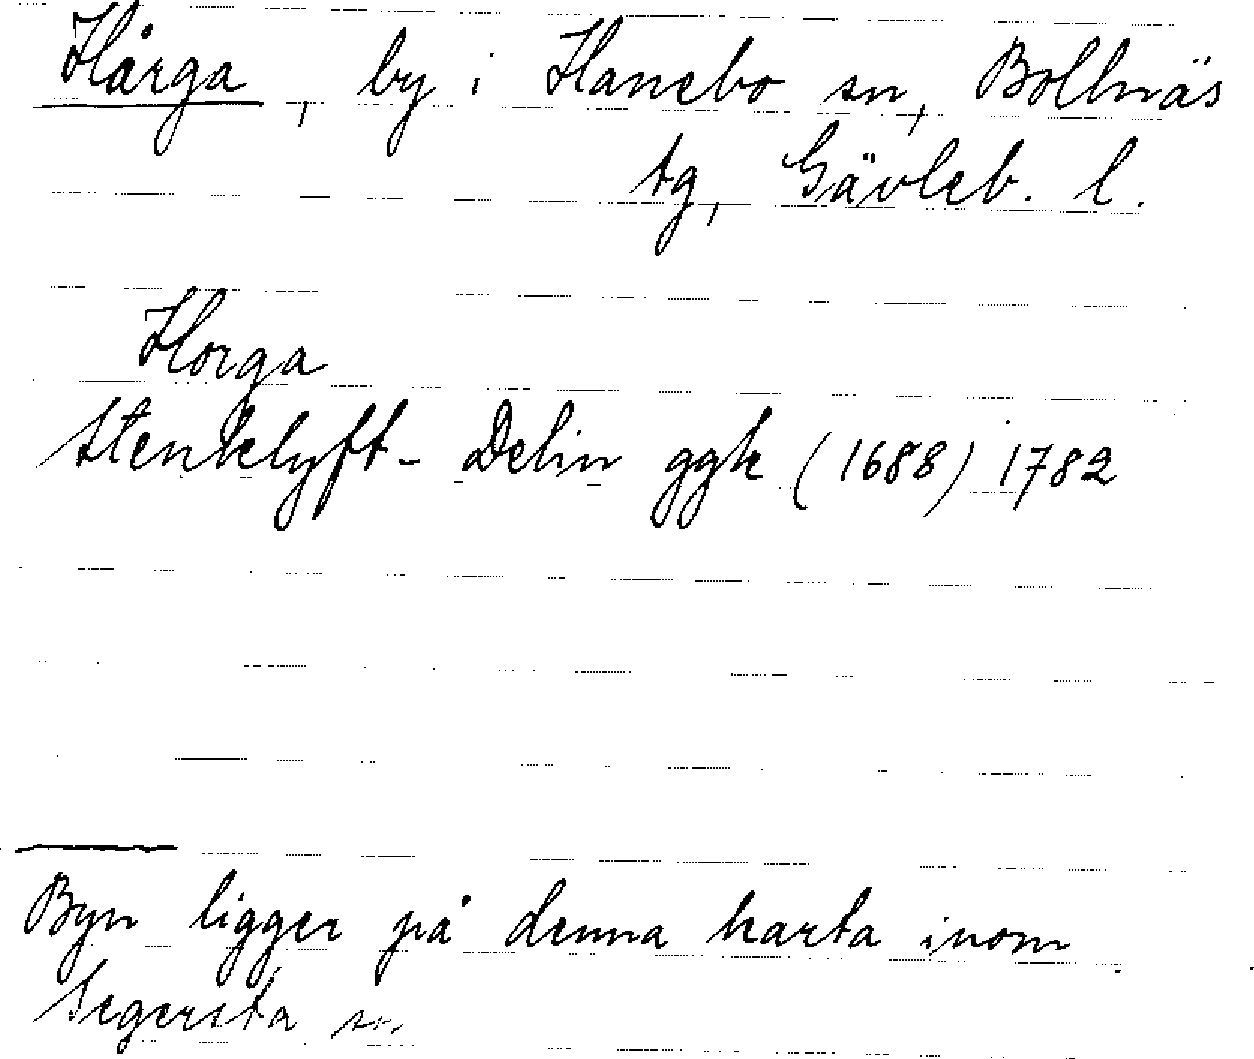 Hårga, by i Hanebo sn, Bollnäs
tg, Gävleb. l.
Horga
Stenklyft-Delin ggk (1688) 1782
Byn ligger på denna karta inom
Segersta sn.